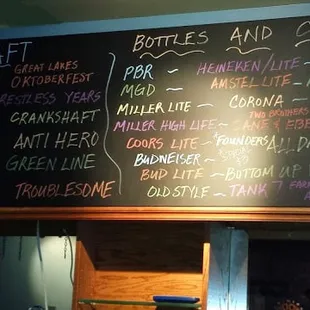 FT
GREAT LAKES
OKTOBERFEST
RESTLESS YEARS
CRANKSHAFT
ANTI HERO
GREEN LINE
TROUBLESOME
BOTTLES AND
PBR ~
MGD ~
MILLER LITE ~
MILLER HIGH LIFE ~
COORS LITE ~
BUDWEISER ~
BUD LITE ~
OLD STYLE ~
HEINEKEN/LITE
AMSTEL LITE
CORONA
TWO BROTHERS
CANE &
FOUNDERS ALL DA
BOTTOM UP
TANK 7